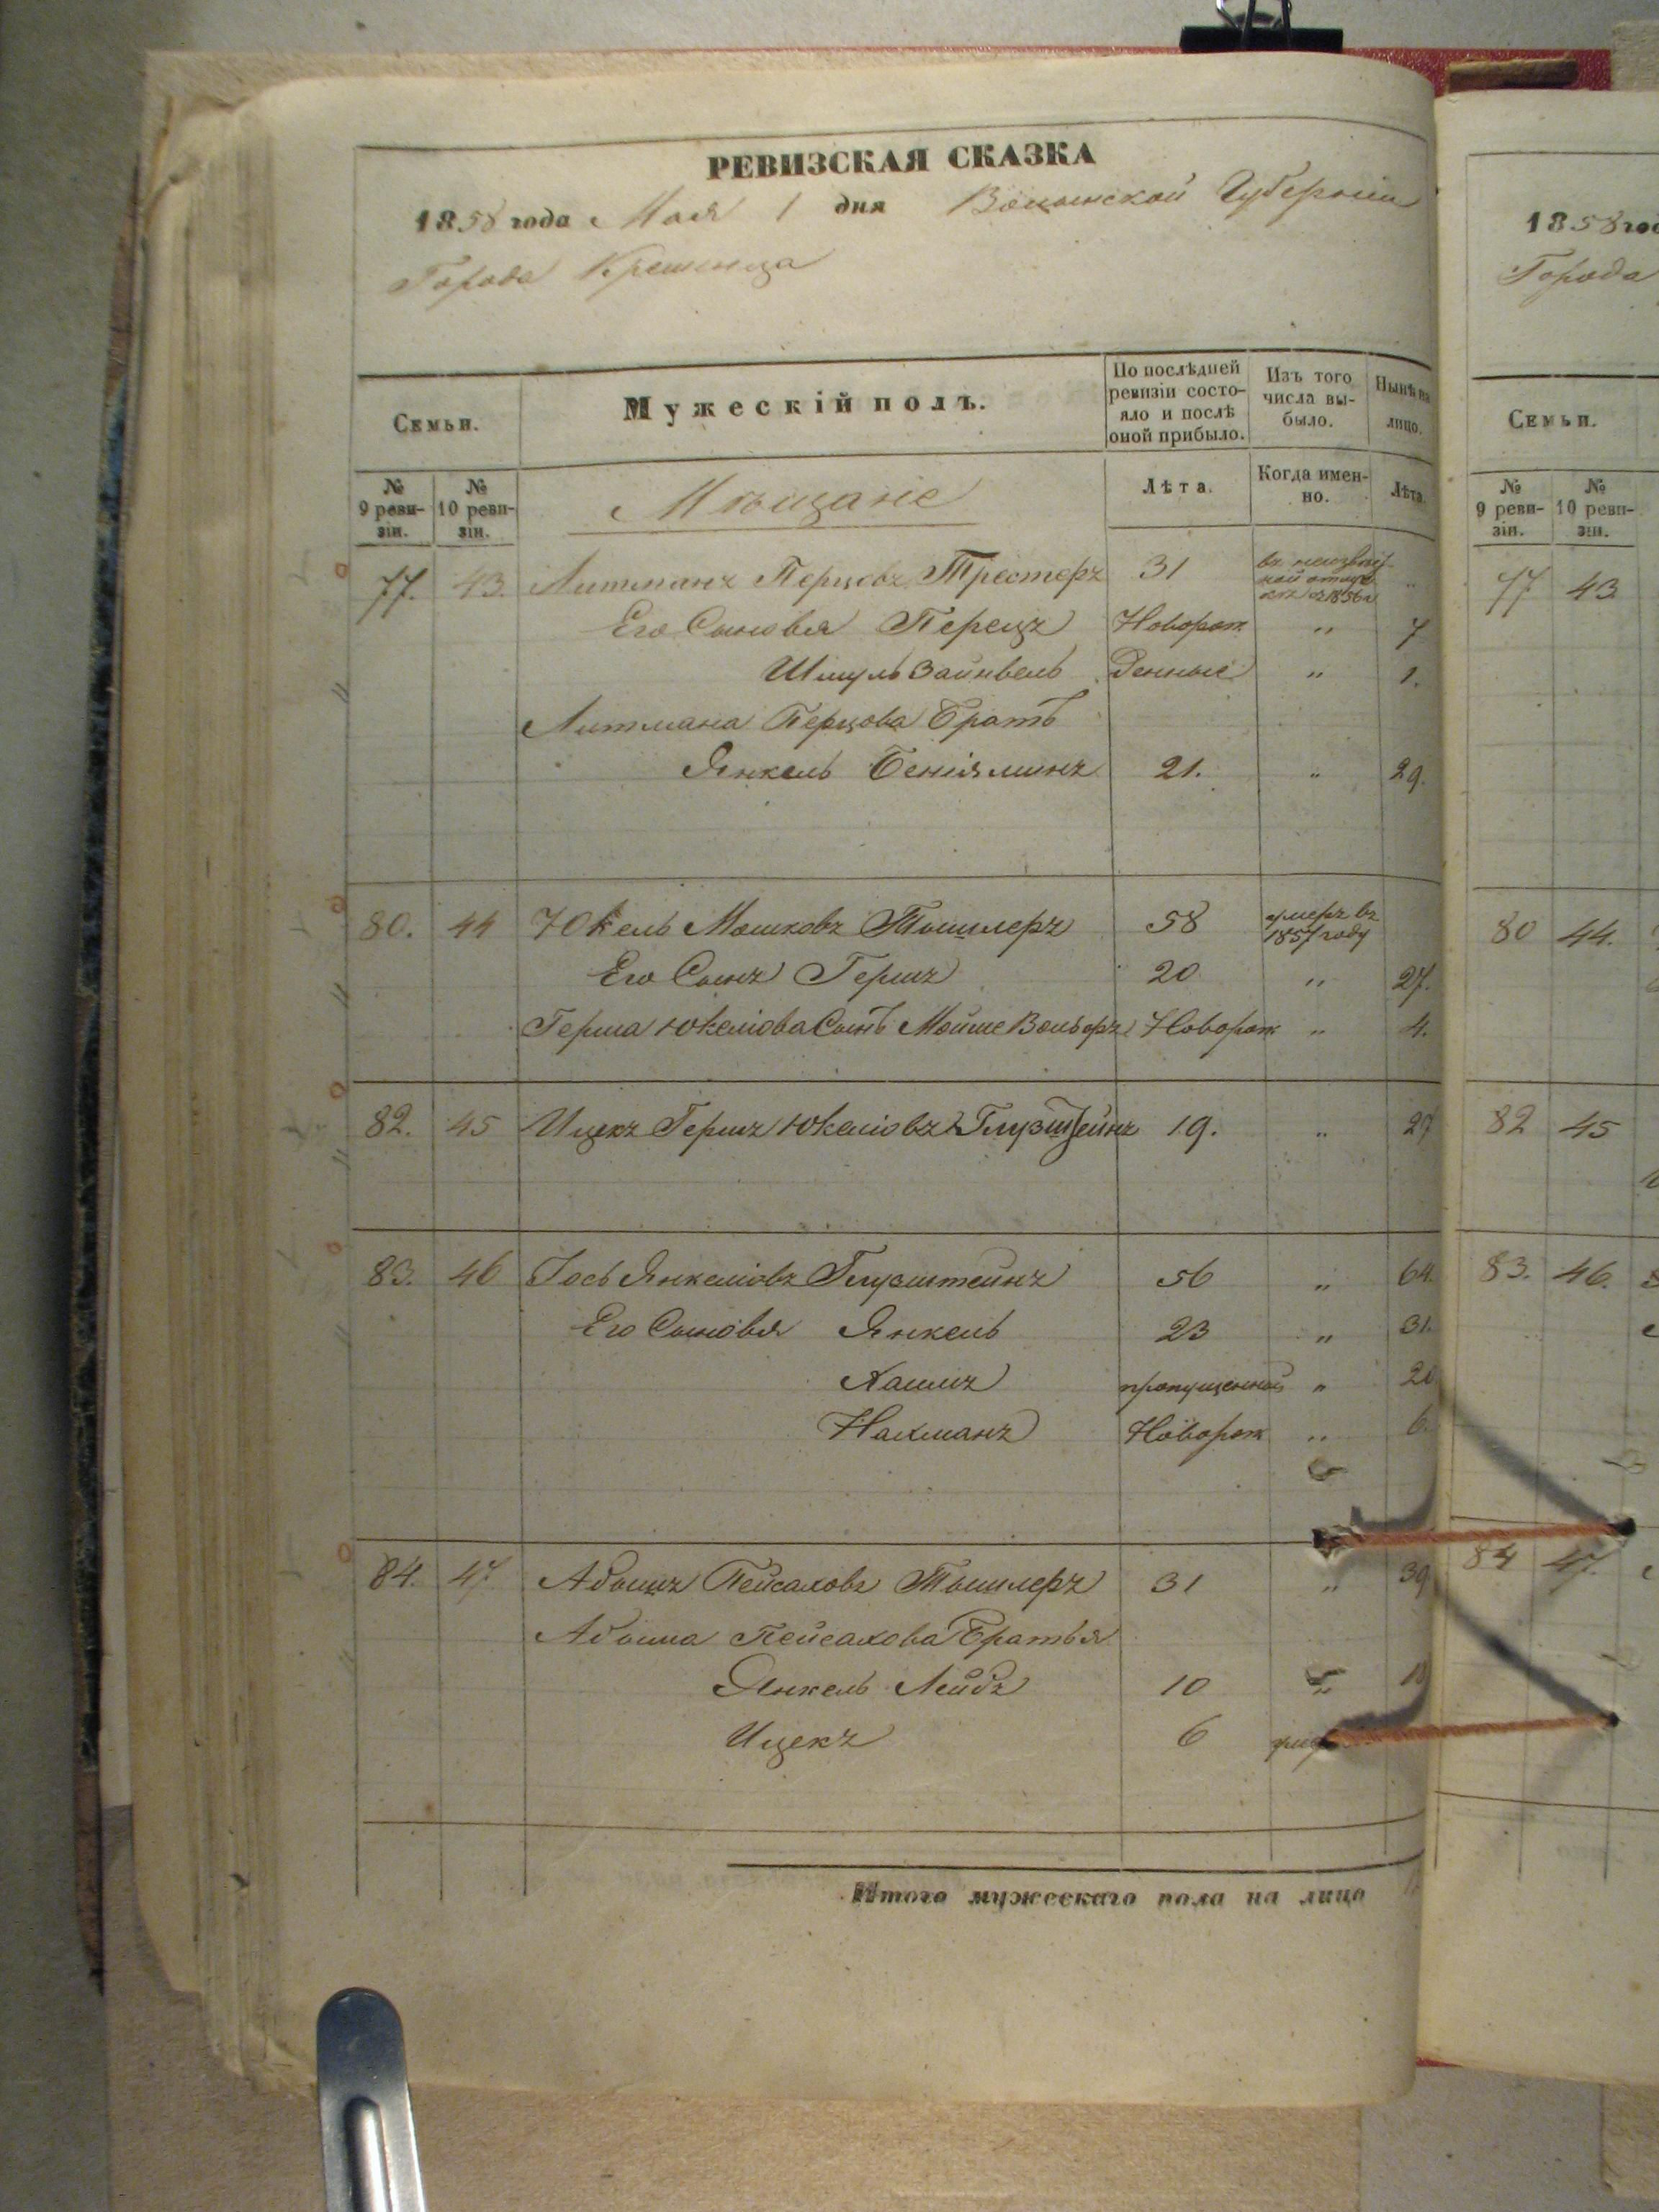 РЕВИЗСКАЯ СКАЗКА
1858 года Мая 1 дня Волынской Губерніи
Города Кременца
Семьи.
Мужескій полъ.
По послѣдней ревизіи состояло и послѣ оной прибыло.
Изъ того числа выбыло.
Нынѣ на лицо.
№ 9 ревизіи.
№ 10 ревизіи.
Мѣщане
Лѣта.
Когда именно.
Лѣта.
77. 43. Литманъ Перцовъ Трестеръ 31 въ неизвѣстной отлучкѣ съ 1856 г „
Его Сыновья Перецъ Новорож „ 7
Шмуль Зайнвель денные „ 1.
Литмана Перцова Братъ
Янкель Беніяминъ 21. „ 29.
80. 44 Юкель Мошковъ Тышлеръ 58 умеръ въ 1857 году
Его Сынъ Гершъ 20 „ 27.
Герша Юкеліова Сынъ Мойше Вольфъ Новорож „ 4.
82. 45 Ицекъ Гершъ Юкеліовъ Глузштейнъ 19. „ 27
83. 46 Іось Янкеліовъ Глузштейнъ 56 „ 64.
Его Сыновья Янкель 23 „ 31.
Хаимъ пропущенный „ 20
Нахманъ Новорож „ 6.
84. 47 Абышъ Пейсаховъ Тышлеръ 31 „ 39
Абыша Пейсахова Братья
Янкель Лейбъ 10 „ 18
Ицекъ 6
Итого мужескаго пола на лицо
1858 год
Города
Семьи.
№ 9 ревизіи.
№ 10 ревизіи.
77 43
80 44.
82 45
83. 46.
84 47.